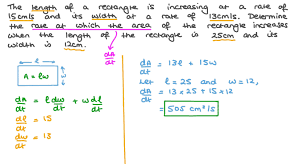 The length of a rectangle is increasing at a rate of
15cm/s and its width at a rate of 13cm/s. Determine
the rate at which the area of the rectangle increases
when the length of the rectangle is 25cm and its
width is 12cm.
dA/dt
l
A = lw
w
dA/dt = l dw/dt + w dl/dt
dl/dt = 15
dw/dt = 13
dA/dt = 13l + 15w
Let l = 25 and w = 12,
dA/dt = 13 × 25 + 15 × 12
dA/dt = 505 cm²/s